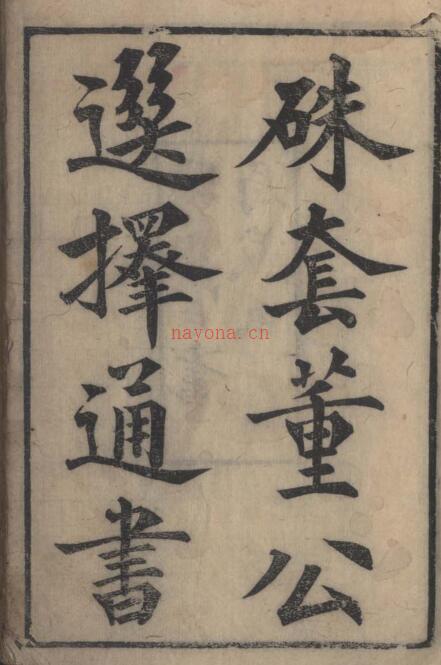 硃套董公
選擇通書
nayona.cn